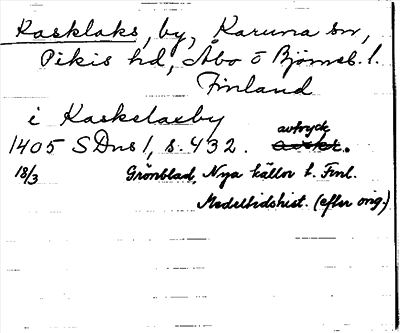 Kasklaks, by, Karuna sn,
Pikis hd, Åbo o Björneb. l.
Finland
i Kaskelaxby
1405 SDns 1, s. 432. avtryck.
18/3 Grönblad, Nya källor t. Finl.
Medeltidshist. (efter orig.)